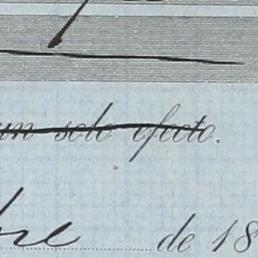 un solo efecto.
bre de 18